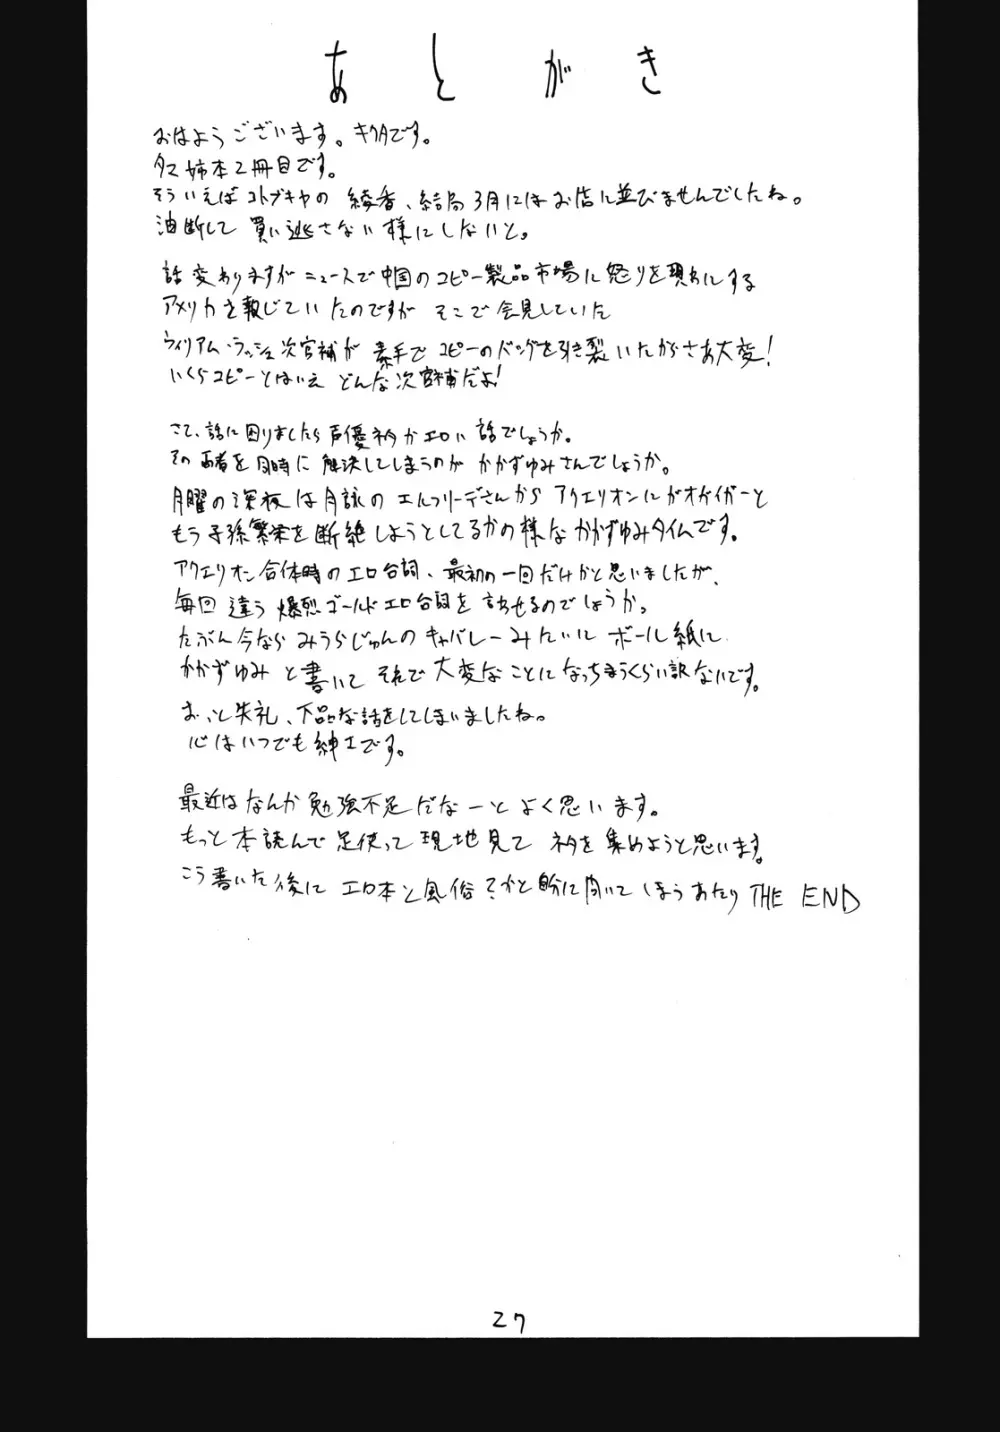 あとがき
おはようございます。キクタです。
タマ姉本2冊目です。
そういえばコトブキヤの 綾香、結局3月にはお店に並びませんでしたね。
油断して 買い逃さない様にしないと。
話変わりますがニュースで中国のコピー製品市場に怒りを現わにする
アメリカを報じていたのですが そこで会見していた
ウィリアム・ラッシュ次官補が 素手でコピーのバッグを引き裂いたがさあ大変!
いくらコピーとはいえ どんな次官補だよ!
さて、話に困りましたら声優ネタかエロい話でしょうか。
その両者を同時に 解決してしまうのが かかずゆみさんでしょうか。
月曜の深夜は月詠の エルフリーデさんから アクエリオンにガオガイガーと
もう子孫繁栄を断絶しようとしてるかの様な かかずゆみタイムです。
アクエリオン合体時のエロ台詞、最初の一回だけかと思いましたが、
毎回違う 爆烈ゴールドエロ台詞を 言わせるのでしょうか。
たぶん今なら みうらじゅんの キャバレーみたいに ボール紙に
かかずゆみ と書いて それで大変なことになっちまうくらい訳ないです。
おっと失礼、下品な話をしてしまいましたね。
心はいつでも紳士です。
最近はなんか勉強不足だなーとよく思います。
もっと本読んで足使って現地見て ネタを集めようと思います。
こう書いた後に エロ本と風俗?かと に向いてしまうあたり THE END
27